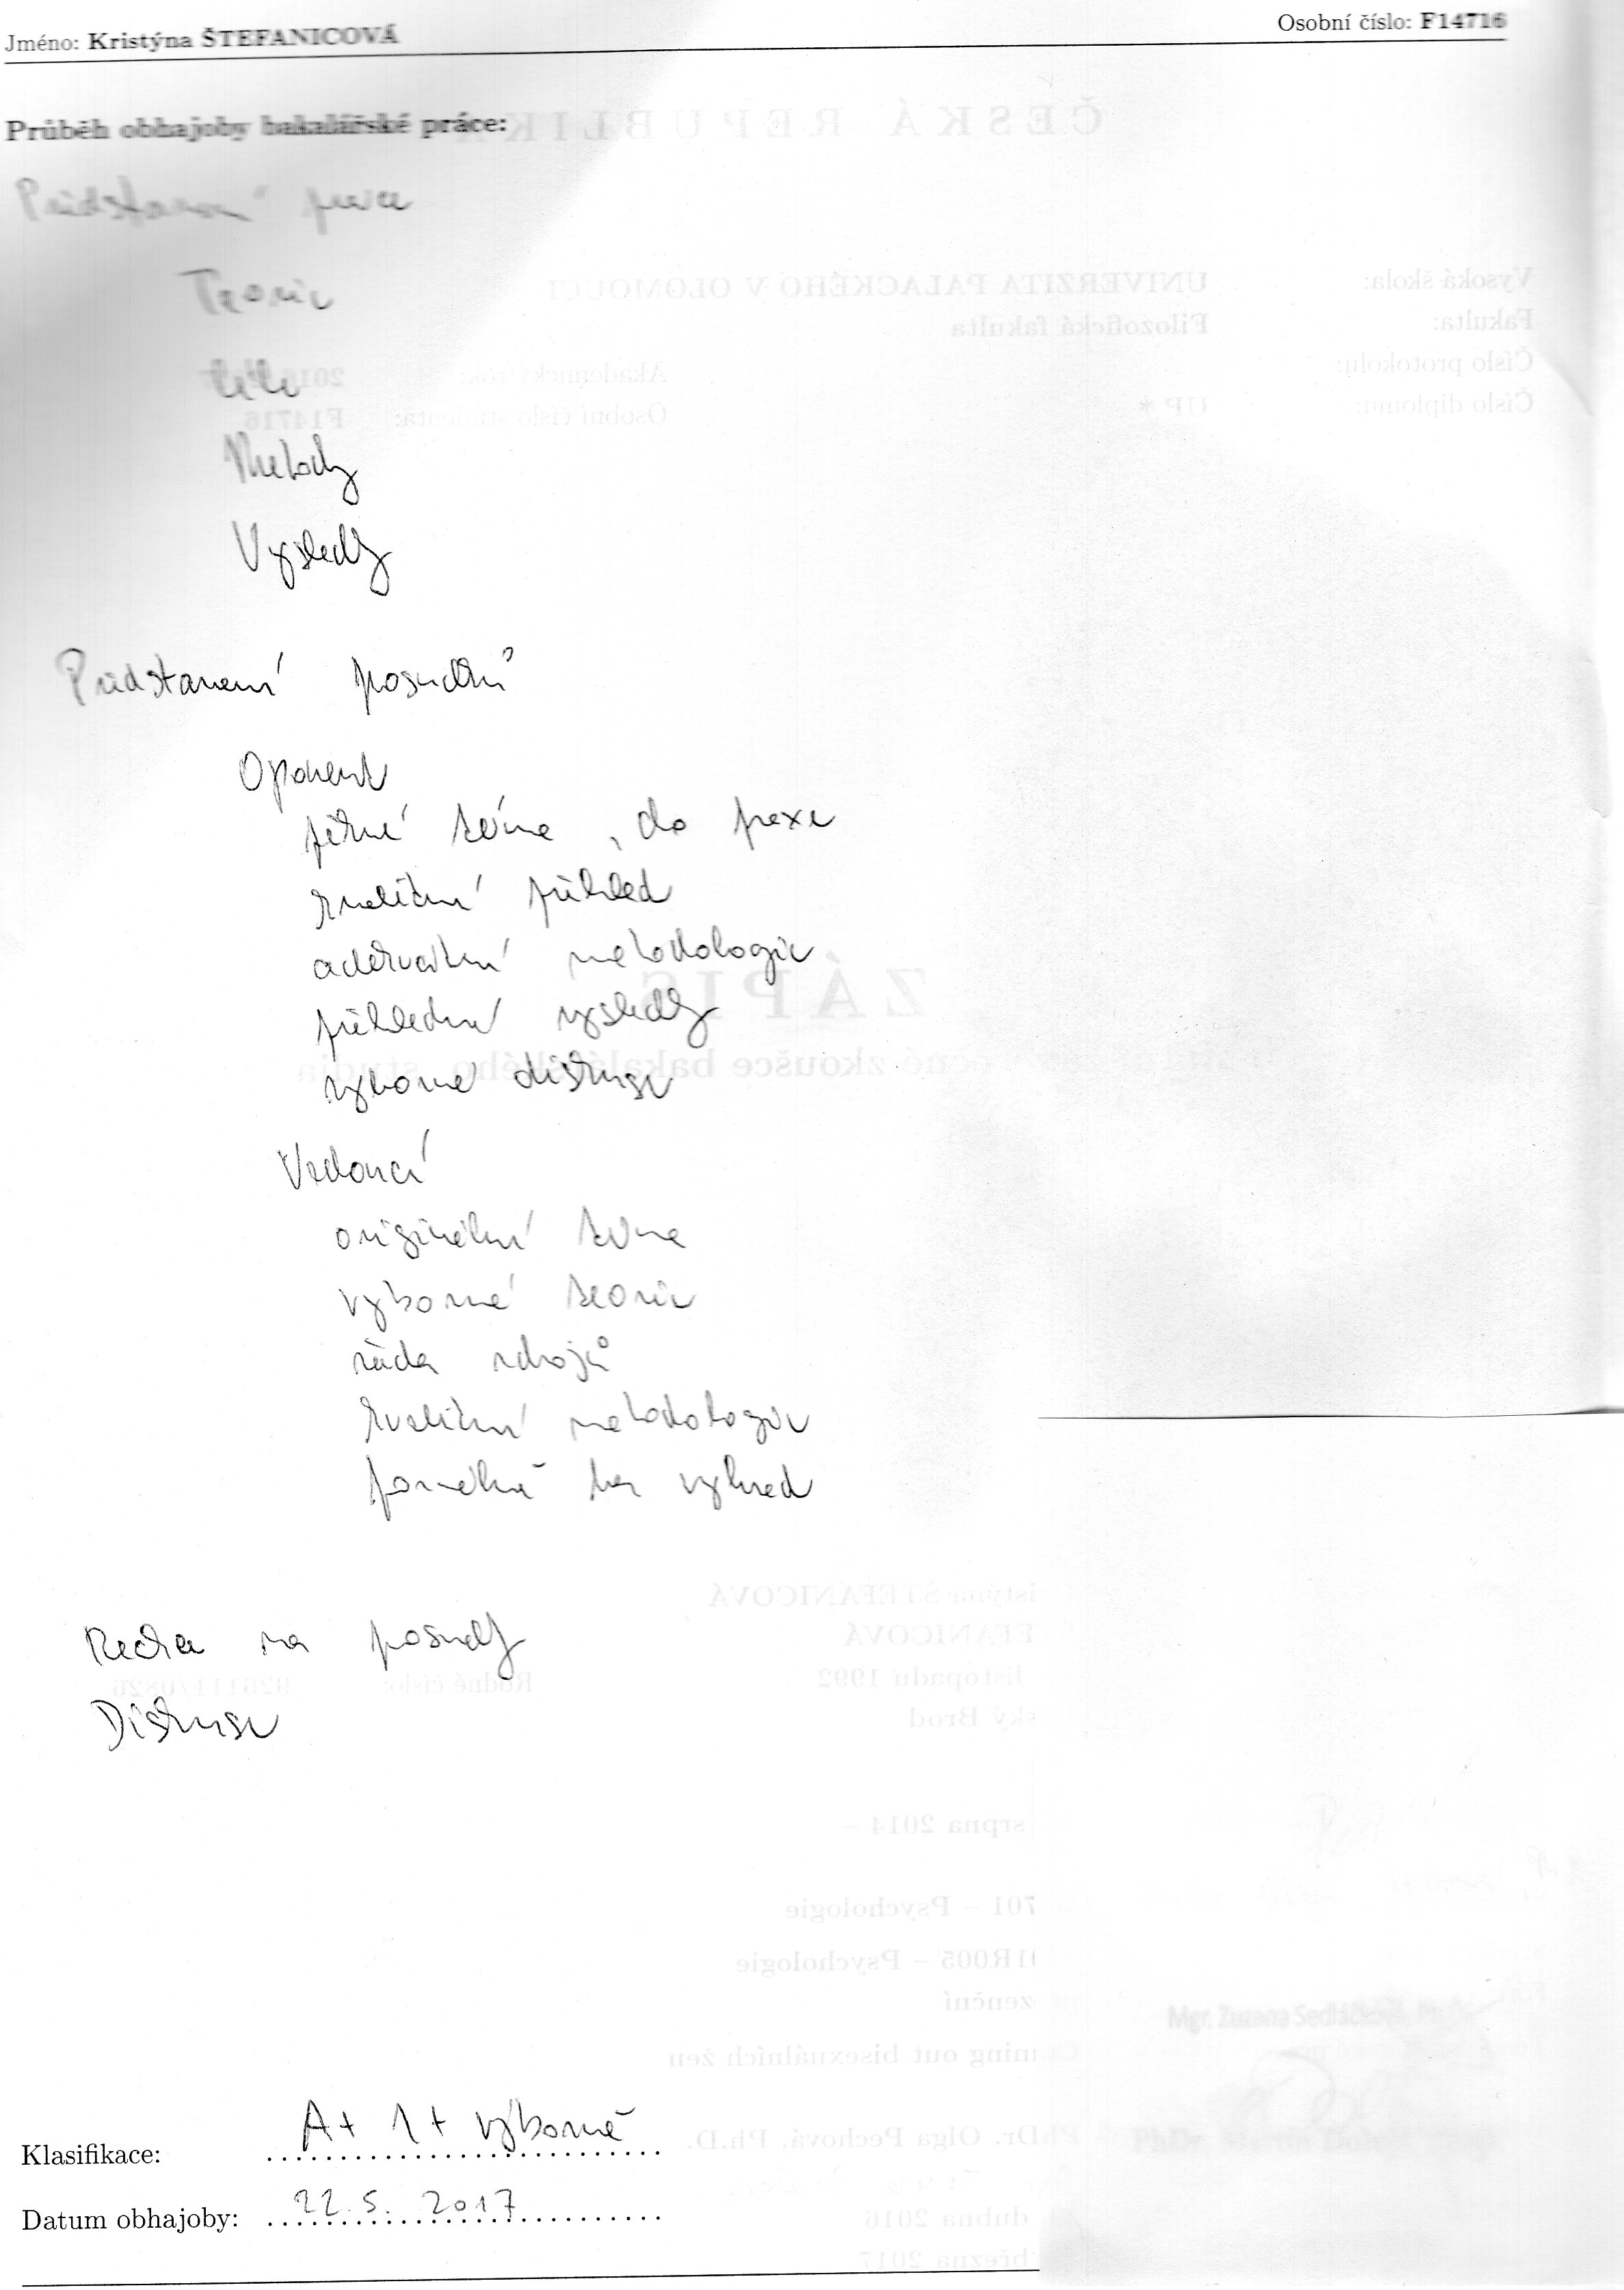 Jméno: Kristýna ŠTEFANICOVÁ Osobní číslo: F14716
Průběh obhajoby bakalářské práce:
Představení práce
Teorie
Cíle
Metody
Výsledky
Představení posudků
Oponent
pěkné téma, do praxe
kvalitní přehled
adekvátní metodologie
přehledné výsledky
výborné diskuse
Vedoucí
originální téma
výborné teorie
řada zdrojů
kvalitní metodologie
poměrně bez výhrad
Reakce na posudky
Diskuse
Klasifikace: A+ 1+ výborně
Datum obhajoby: 22.5. 2017